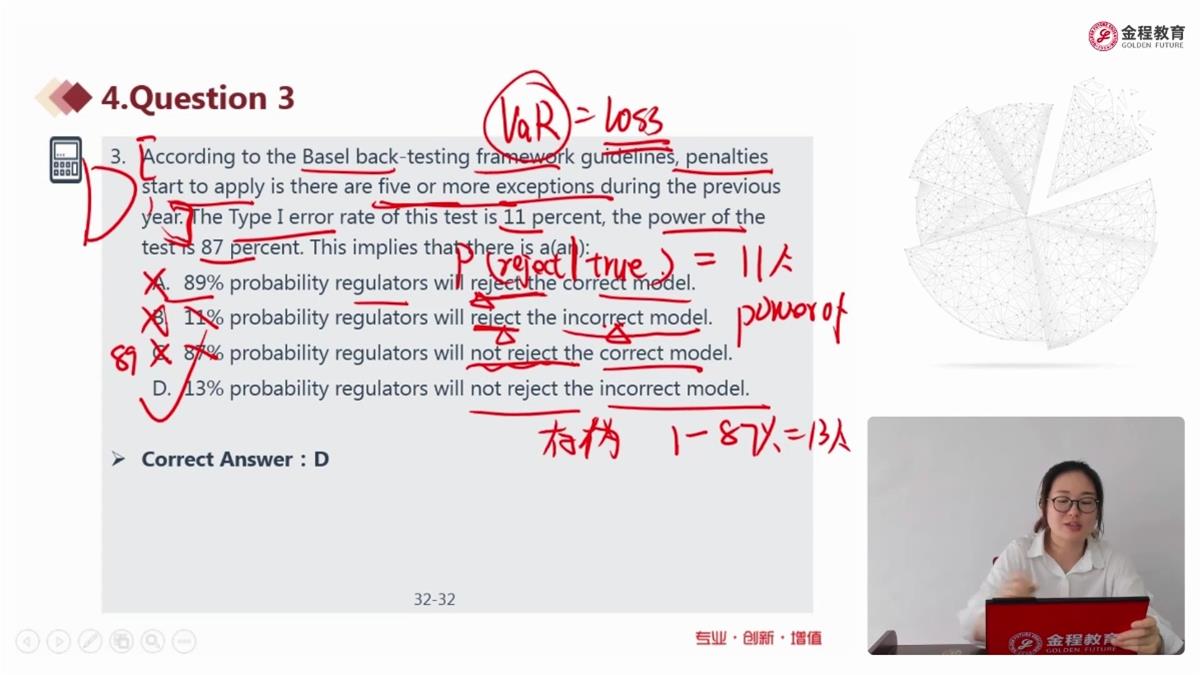 金程教育
GOLDEN FUTURE
4.Question 3
VaR = Loss
3. According to the Basel back-testing framework guidelines, penalties
start to apply is there are five or more exceptions during the previous
year. The Type I error rate of this test is 11 percent, the power of the
test is 87 percent. This implies that there is a(an):
P (reject | true) = 11%
A. 89% probability regulators will reject the correct model.
B. 11% probability regulators will reject the incorrect model.
power of
89
C. 87% probability regulators will not reject the correct model.
D. 13% probability regulators will not reject the incorrect model.
存伪 1-87%=13%
D
Correct Answer : D
32-32
专业·创新·增值
金程教育
GOLDEN FUTURE